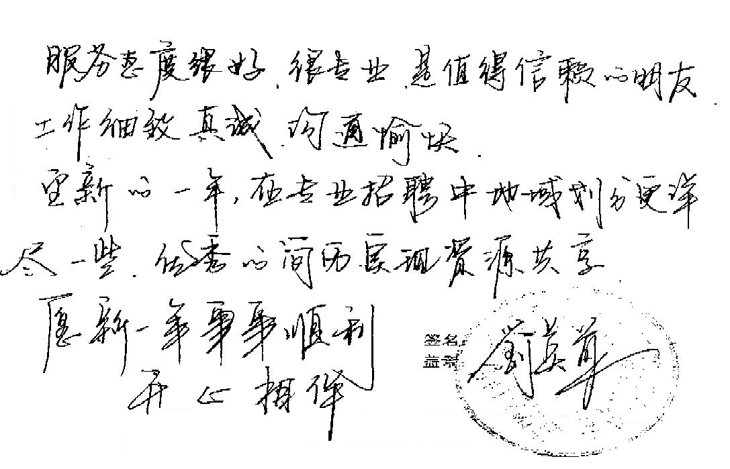 服务态度很好、很专业、是值得信赖的朋友
工作细致真诚、沟通愉快.
望新的一年,在专业招聘中地域划分更详
尽一些.优秀的简历实现资源共享
愿新一年事事顺利
开心相伴
签名
盖章
劉英